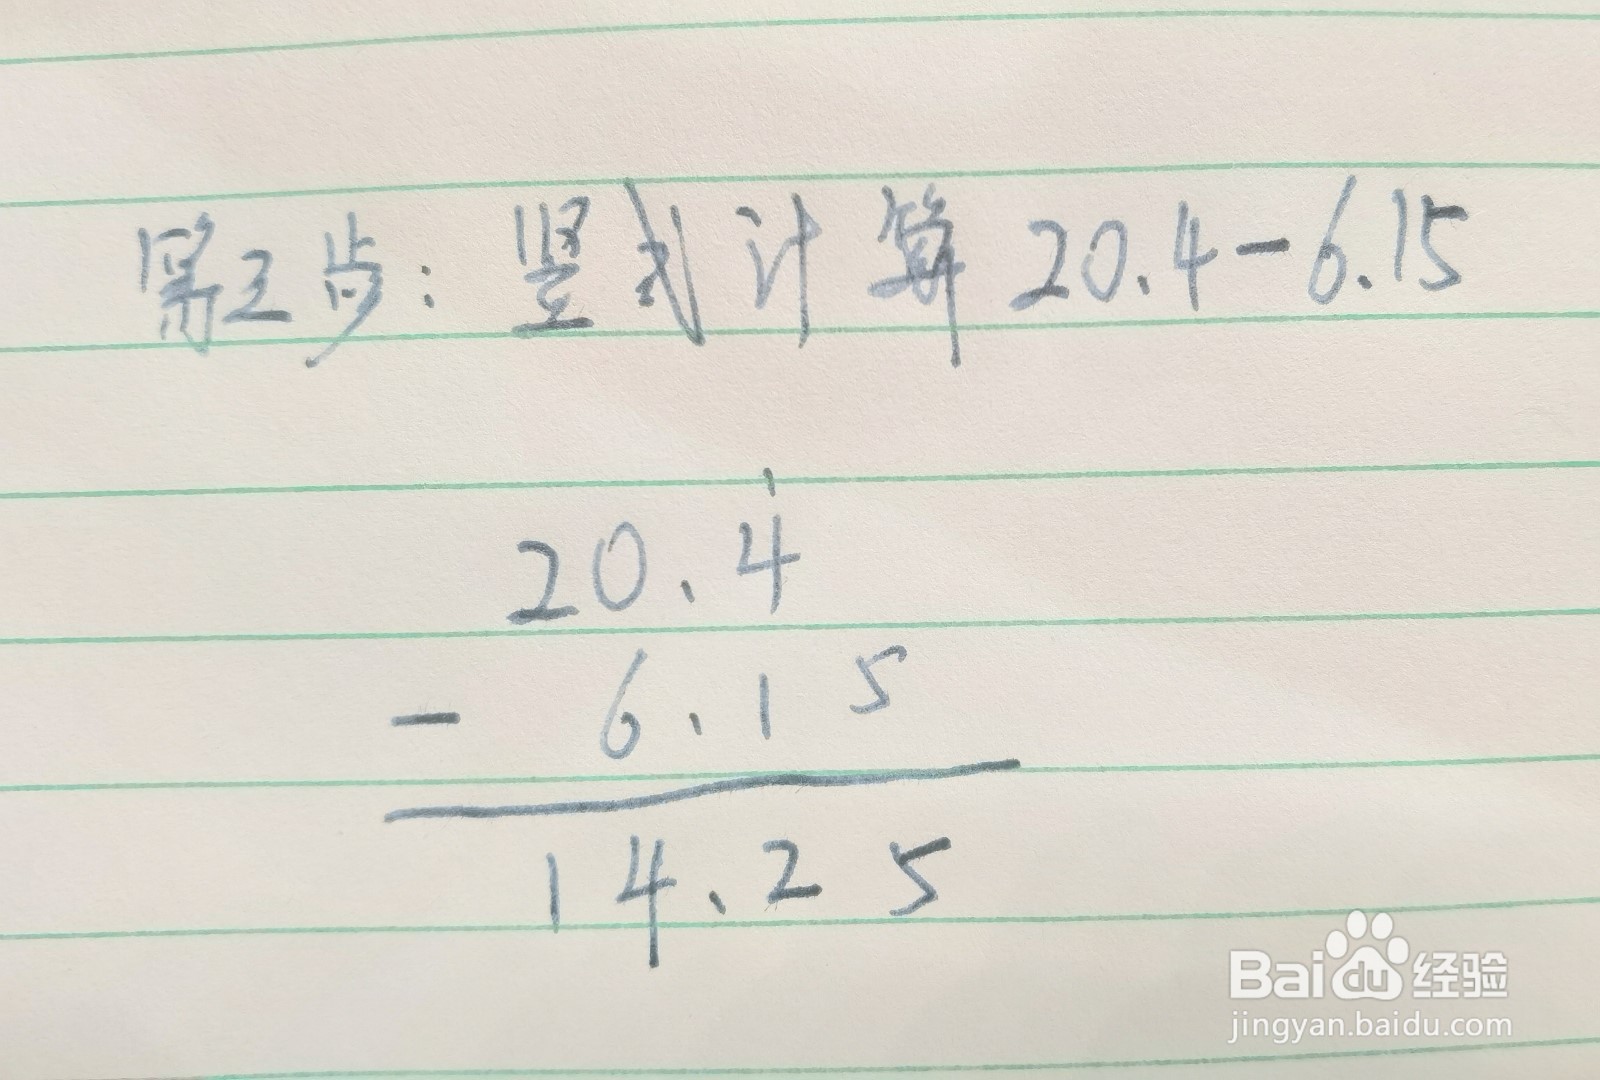 第三步：竖式计算 20.4-6.15
20.4
- 6.15
14.25
Bai du 经验
jingyan.baidu.com